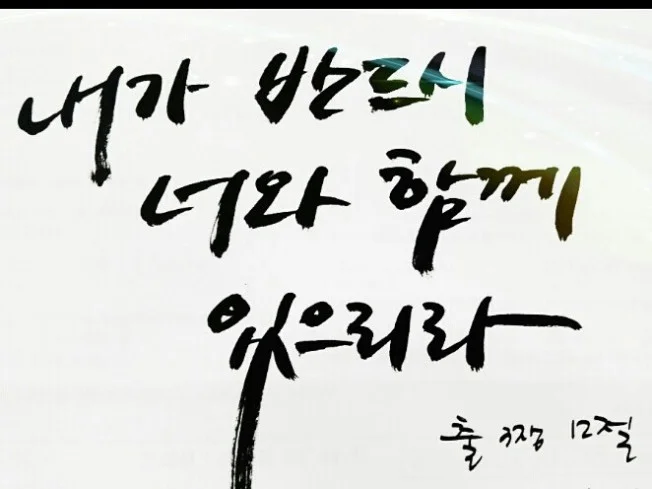 내가 반드시
너와 함께
있으리라
출 3장 12절